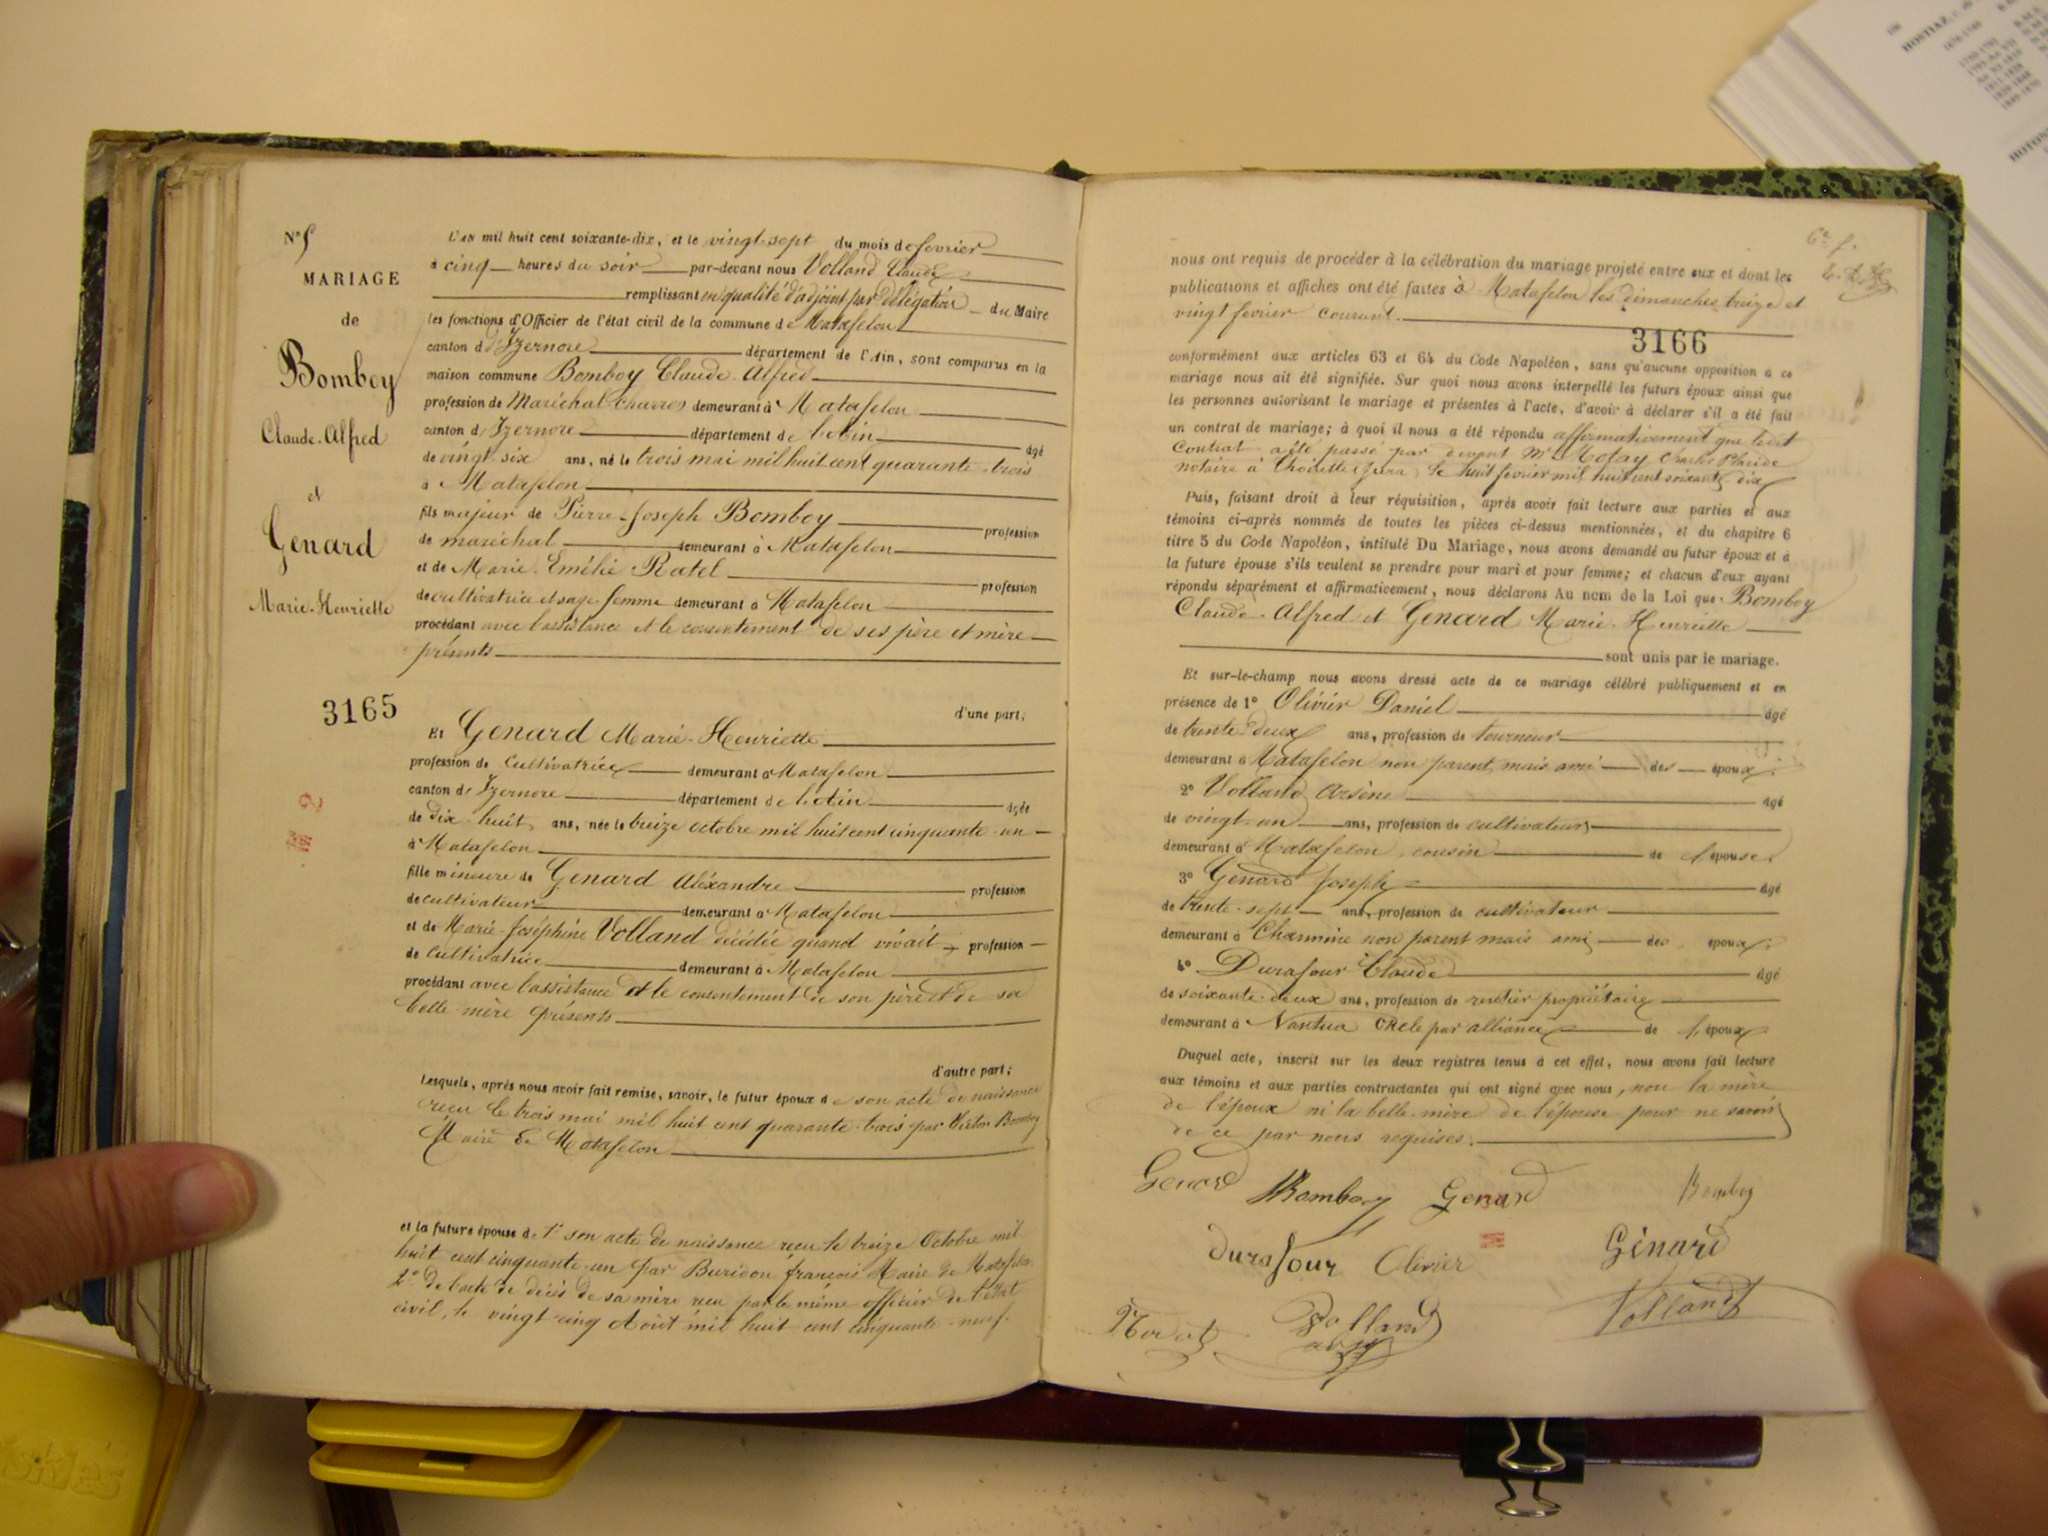 N° 5
MARIAGE
de
Bomboy
Claude-Alfred
et
Genard
Marie-Henriette
3165
L'AN mil huit cent soixante-dix, et le vingt-sept du mois de fevrier
à cinq heures du soir par-devant nous Volland Claude
remplissant en qualité d'adjoint par délégation du Maire
les fonctions d'Officier de l'état civil de la commune de Matafelon
canton d'Izernore département de l'Ain, sont comparus en la
maison commune Bomboy Claude-Alfred
profession de Maréchal demeurant à Matafelon
canton d'Izernore département de l'Ain âgé
de vingt-six ans, né le trois mai mil huit cent quarante-trois
à Matafelon
fils majeur de Pierre-Joseph Bomboy profession
de maréchal demeurant à Matafelon
et de Marie-Emélie Ratel profession
de cultivatrice et sage-femme demeurant à Matafelon
procédant avec l'assistance et le consentement de ses père et mère
présents
d'une part;
Et Genard Marie-Henriette
profession de Cultivatrice demeurant à Matafelon
canton d'Izernore département de l'Ain âgée
de dix-huit ans, née le treize octobre mil huit cent cinquante-un
à Matafelon
fille mineure de Genard Aléxandre profession
de cultivateur demeurant à Matafelon
et de Marie-Joséphine Volland décédée quand vivait profession
de Cultivatrice demeurant à Matafelon
procédant avec l'assistance et le consentement de son père et de sa
belle-mère présents
d'autre part;
Lesquels, après nous avoir fait remise, savoir, le futur époux de son acte de naissance
reçu le trois mai mil huit cent quarante-trois par Victor Bomboy
Maire de Matafelon
et la future épouse de 1° son acte de naissance reçu le treize Octobre mil
huit cent cinquante-un par Buridon françois Maire de Matafelon
2° de l'acte de décès de sa mère reçu par le même officier de l'état
civil, le vingt-cinq Août mil huit cent cinquante-neuf.
nous ont requis de procéder à la célébration du mariage projeté entre eux et dont les
publications et affiches ont été faites à Matafelon les dimanches treize et
vingt fevrier courant.
3166
conformément aux articles 63 et 64 du Code Napoléon, sans qu'aucune opposition à ce
mariage nous ait été signifiée. Sur quoi nous avons interpellé les futurs époux ainsi que
les personnes autorisant le mariage et présentes à l'acte, d'avoir à déclarer s'il a été fait
un contrat de mariage; à quoi il nous a été répondu affirmativement que ledit
Contrat a été passé par devant Me Motay Charles
notaire à Thoirette (Jura) le huit fevrier mil huit cent soixante dix
Puis, faisant droit à leur réquisition, après avoir fait lecture aux parties et aux
témoins ci-après nommés de toutes les pièces ci-dessus mentionnées, et du chapitre 6
titre 5 du Code Napoléon, intitulé Du Mariage, nous avons demandé au futur époux et à
la future épouse s'ils veulent se prendre pour mari et pour femme; et chacun d'eux ayant
répondu séparément et affirmativement, nous déclarons Au nom de la Loi que Bomboy
Claude-Alfred et Genard Marie-Henriette
sont unis par le mariage.
Et sur-le-champ nous avons dressé acte de ce mariage célébré publiquement et en
présence de 1° Olivier Daniel âgé
de trente-deux ans, profession de tourneur
demeurant à Matafelon non parent, mais ami des époux.
2° Volland Arsène âgé
de vingt-un ans, profession de cultivateur
demeurant à Matafelon, cousin de l'épouse.
3° Genard Joseph âgé
de trente-sept ans, profession de cultivateur
demeurant à Charmine non parent mais ami des époux.
4° Durafour Claude âgé
de soixante-deux ans, profession de rentier propriétaire
demeurant à Nantua oncle par alliance de l'époux
Duquel acte, inscrit sur les deux registres tenus à cet effet, nous avons fait lecture
aux témoins et aux parties contractantes qui ont signé avec nous, non la mère
de l'époux ni la belle-mère de l'épouse pour ne savoir
de ce par nous requises.
Genard Bomboy Genard Bomboy
Durafour Olivier Génard
Volland Volland